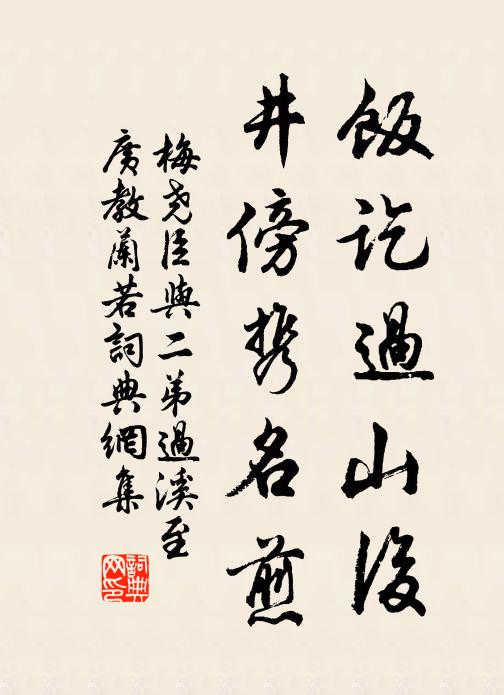 飯訖過山後
井傍携名煎
梅堯臣與二弟過溪至
廣教蘭若詞典網集
詞典
网印